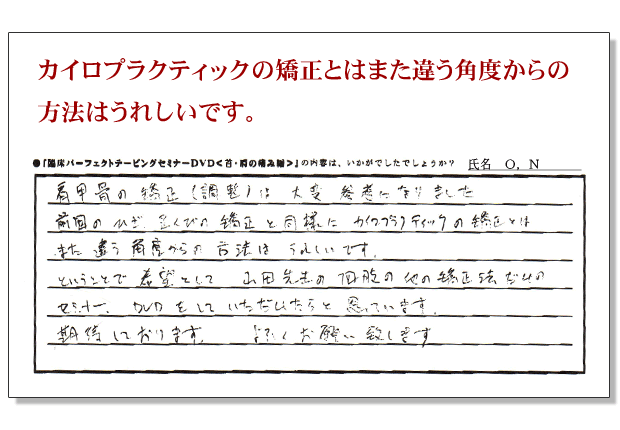 カイロプラクティックの矯正とはまた違う角度からの
方法はうれしいです。
●『臨床パーフェクトテーピングセミナーDVD<首・肩の痛み編>』の内容は、いかがでしたでしょうか? 氏名 O, N
肩甲骨の矯正(調整)は大変参考になりました
前回のひざ 足くびの矯正と同様に カイロプラクティックの矯正とは
また違う角度からの方法は うれしいです。
ということで希望として 山田先生の 四肢の他の矯正法だけの
セミナー、DVDをして いただけたらと思っています。
期待しております。 よろしくお願い致します